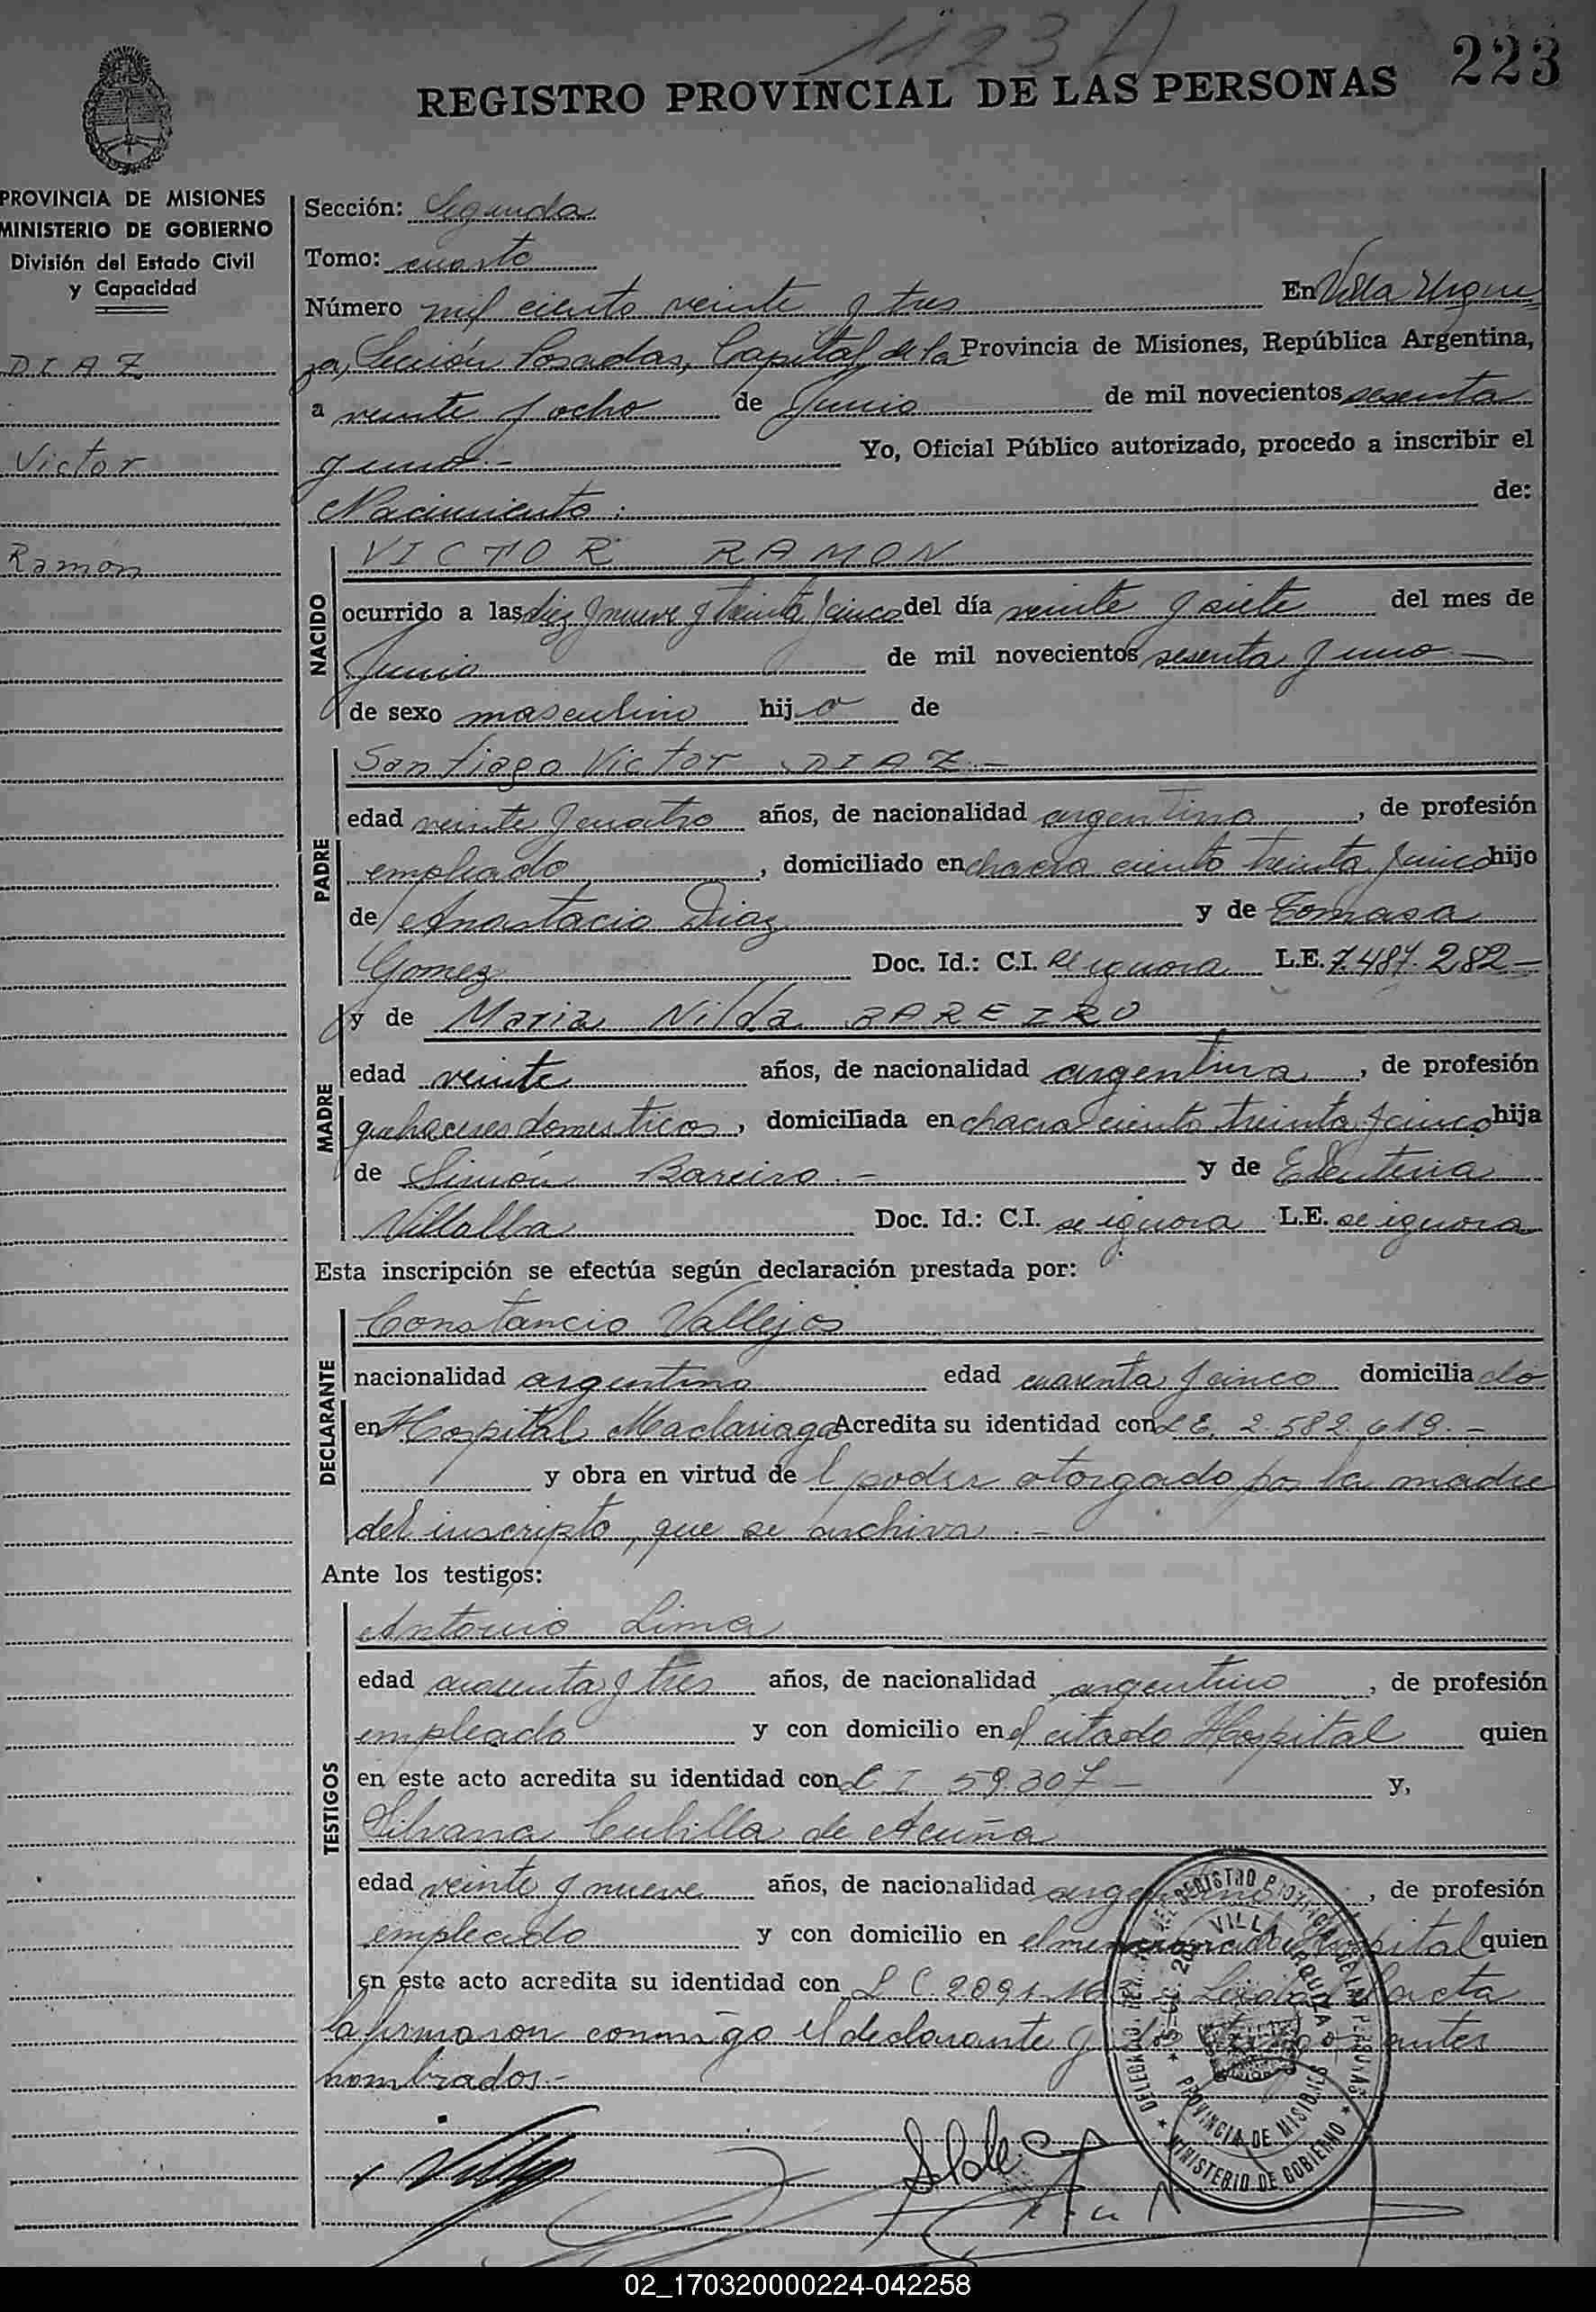 1123 A
223
REGISTRO PROVINCIAL DE LAS PERSONAS
PROVINCIA DE MISIONES
MINISTERIO DE GOBIERNO
División del Estado Civil
y Capacidad
DIAZ
Victor
Ramón
Sección: Segunda
Tomo: cuarto
Número mil ciento veinte y tres En Villa Urqui
za, Sección Posadas, Capital de la Provincia de Misiones, República Argentina,
a veinte y ocho de Junio de mil novecientos sesenta
y uno.- Yo, Oficial Público autorizado, procedo a inscribir el
Nacimiento: de:
NACIDO
VICTOR RAMON
ocurrido a las diez y nueve y treinta y cinco del día veinte y siete del mes de
Junio de mil novecientos sesenta y uno
de sexo masculino hijo de
PADRE
Santiago Victor DIAZ.-
edad veinte y cuatro años, de nacionalidad argentina, de profesión
empleado, domiciliado en chacra ciento treinta y cinco hijo
de Anastacio Diaz y de Tomasa
Gomez Doc. Id.: C.I. se ignora L.E. 7.487.282-
MADRE
y de Maria Nilda BAREIRO
edad veinte años, de nacionalidad argentina, de profesión
quehaceres domesticos, domiciliada en chacra ciento treinta y cinco hija
de Simón Bareiro.- y de Eleuteria
Villalba Doc. Id.: C.I. se ignora L.E. se ignora
Esta inscripción se efectúa según declaración prestada por:
DECLARANTE
Constancio Vallejos
nacionalidad argentino edad cuarenta y cinco domiciliado
en Hospital Madariaga Acredita su identidad con L E. 2.582.619.-
y obra en virtud de l poder otorgado por la madre
del inscripto, que se archiva.-
Ante los testigos:
TESTIGOS
Antonio Lima
edad cuarenta y tres años, de nacionalidad argentino, de profesión
empleado y con domicilio en el citado Hospital quien
en este acto acredita su identidad con C I 59.307- y,
Silvana Cubilla de Acuña
edad veinte y nueve años, de nacionalidad argentina, de profesión
empleado y con domicilio en el mencionado Hospital quien
en este acto acredita su identidad con L C. Leida el acta
la firmaron conmigo el declarante y los testigos antes
nombrados.-
DELEGADO DEL REGISTRO PROVINCIAL DE LAS PERSONAS
VILLA URQUIZA
PROVINCIA DE MISIONES
MINISTERIO DE GOBIERNO
02_170320000224-042258